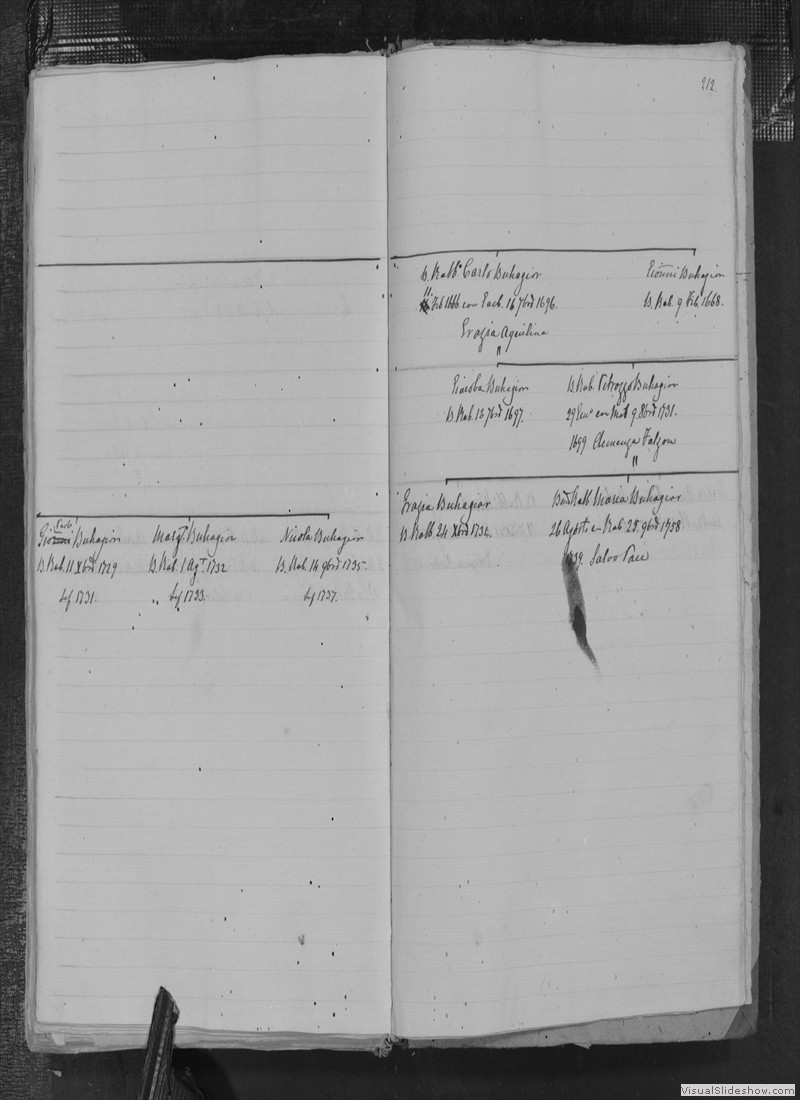 212.
B. Rabb. Carlo Buhagior
11. Feb 1666. con Zach. 16 7bre 1696.
Grazia Aquilina
"
Buhagior
B. Rab. 9 Feb. 1668.
Buhagior
B. Rab. 13 7bre 1697.
B. Rab. Petruzzo Buhagior
29 con Rab 9. 8bre 1731.
1699 Clemenza Falzon
"
Grazia Buhagior
B. Rabb. 24 Xbre 1734.
Rabb Maria Buhagior
26 Agosto Rab. 25. 9bre 1758.
1739. Salvo Pace
Buhagior
B. Rab. 11 Xbre 1729
1731.
Buhagior
B. Rab. 1 Agt. 1732
1733.
Nicola Buhagior
B. Rab. 14 9bre 1735.
1737.
VisualSlideshow.com